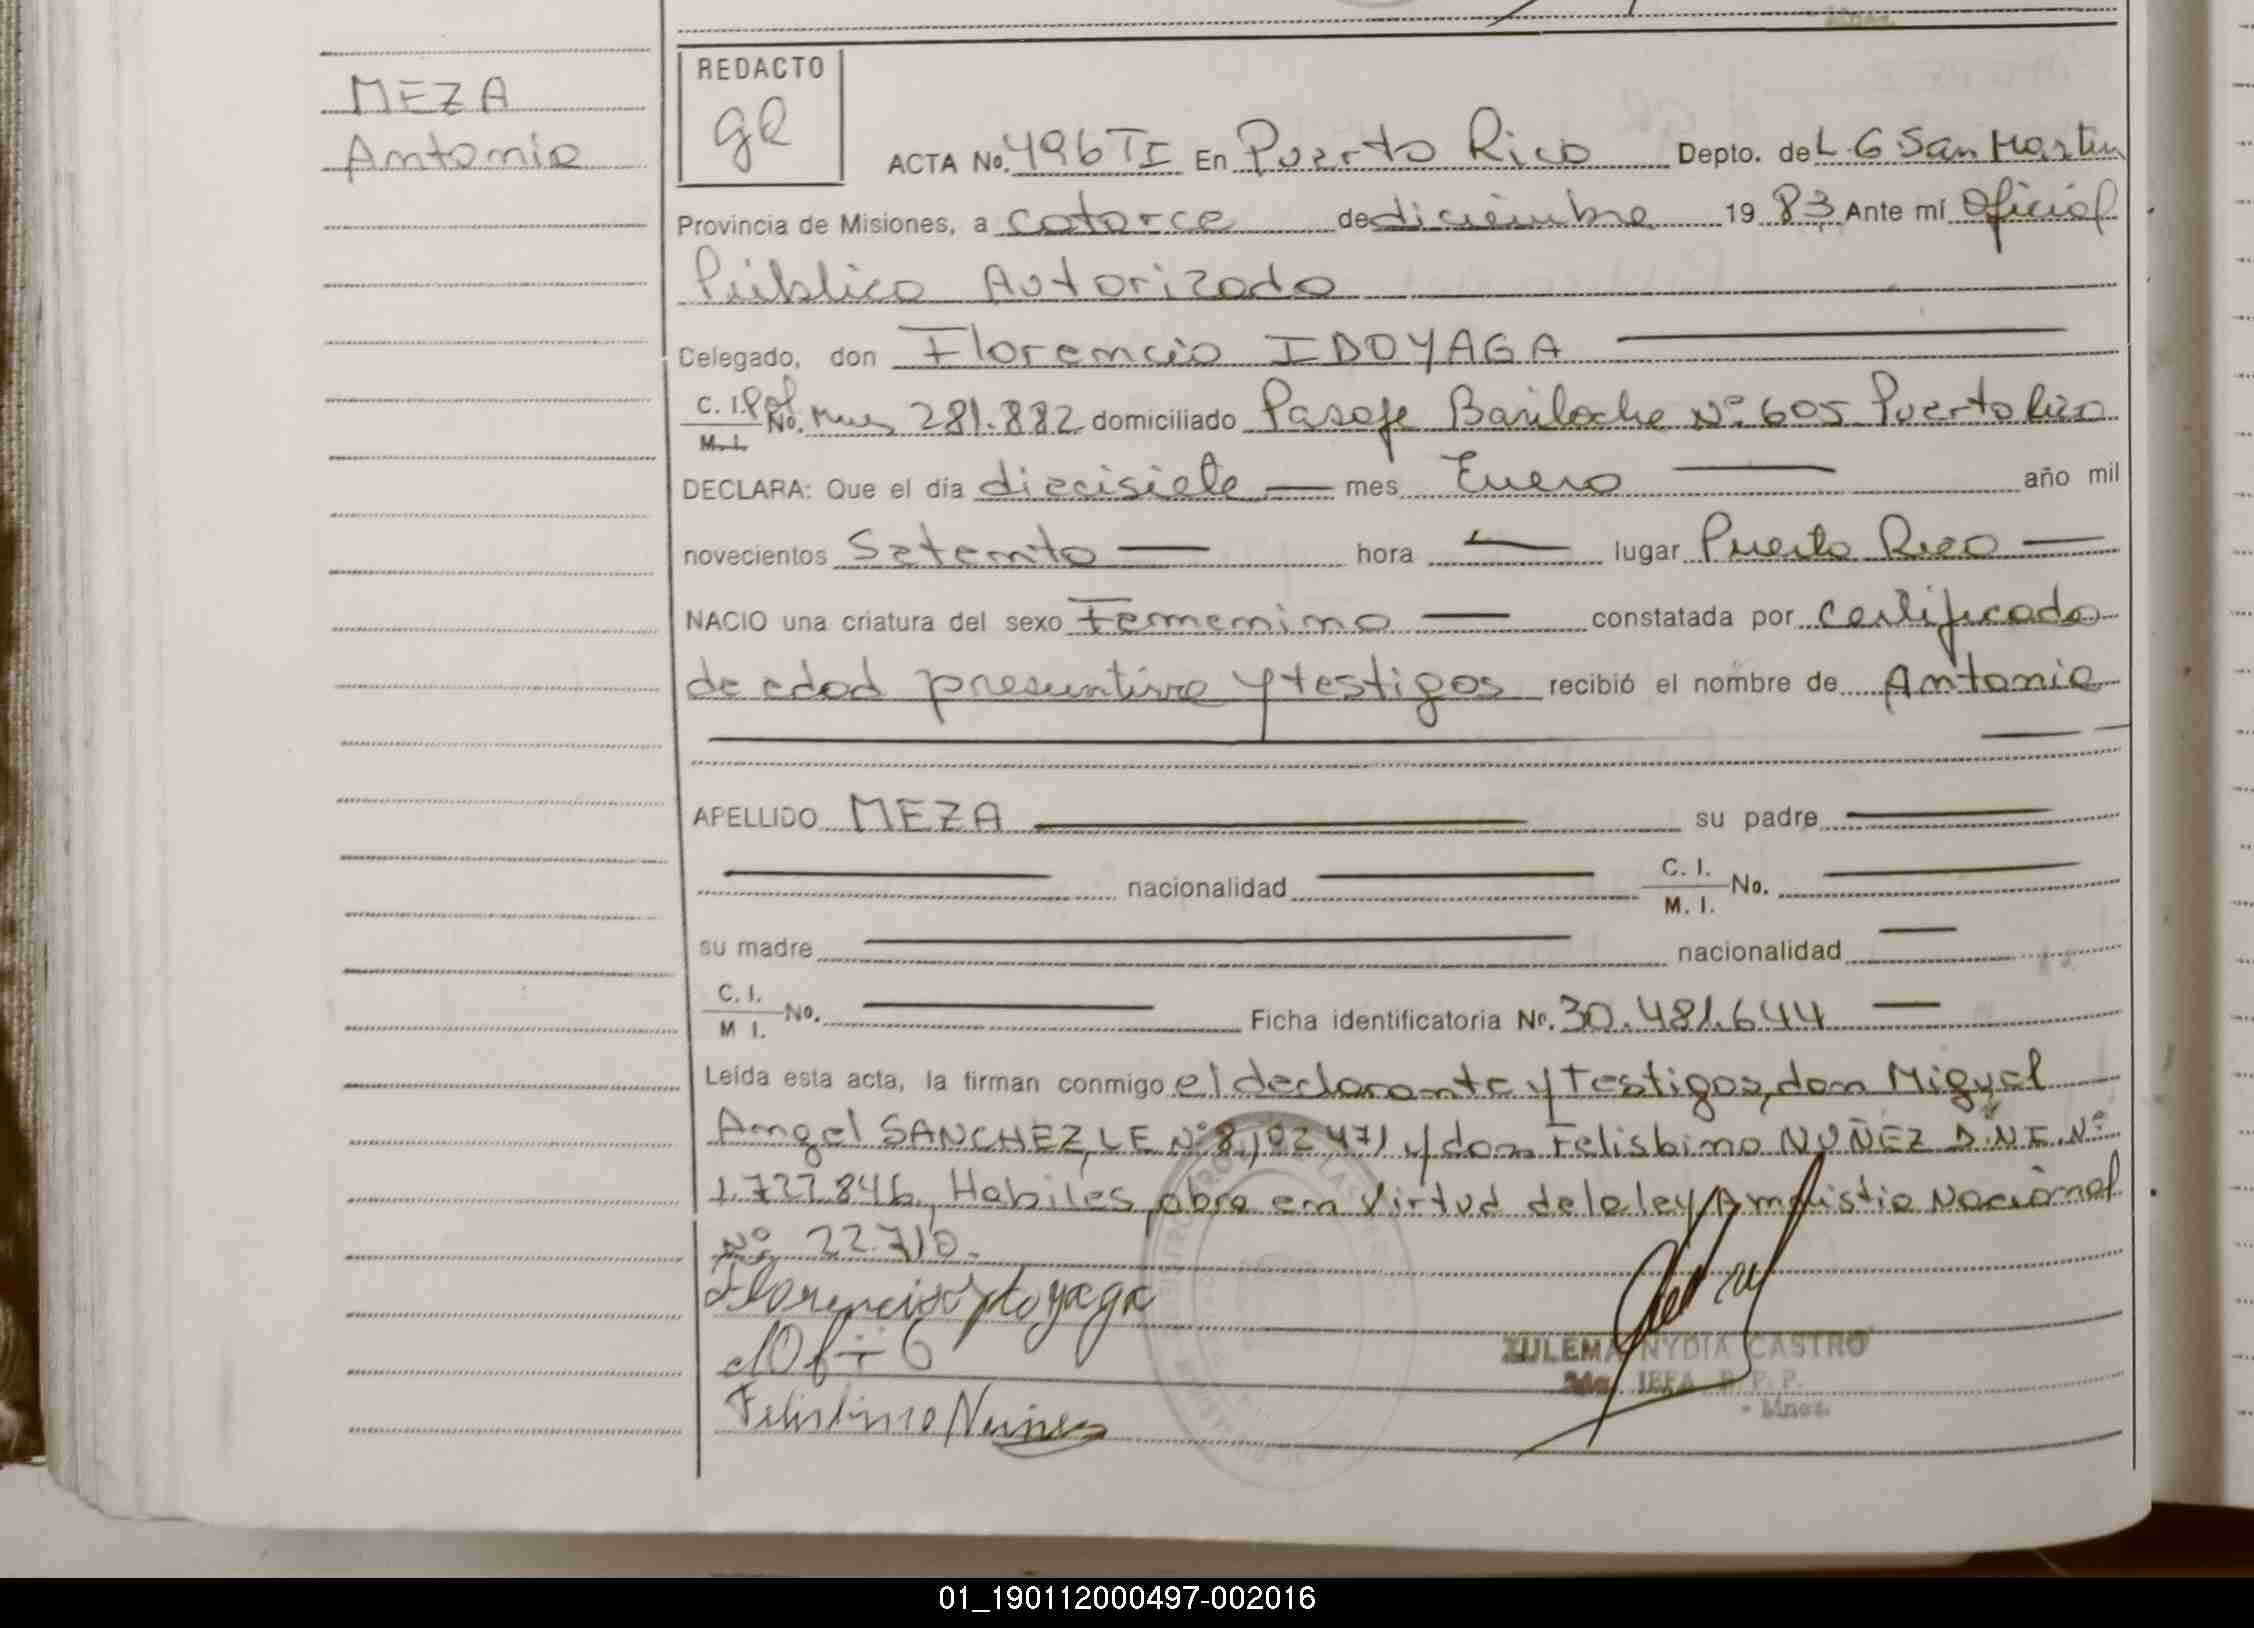 MEZA
Antonia
REDACTO
gR
ACTA No. 496 TI En Puerto Rico Depto. de L. G. San Martin
Provincia de Misiones, a catorce de diciembre 19 83 Ante mí Oficial
Público Autorizado
Celegado, don Florencio IDOYAGA
C. I. Pol No. Mnes 281.882 domiciliado Pasaje Bariloche Nº 605 Puerto Rico
M. I.
DECLARA: Que el día diecisiete mes Enero año mil
novecientos Setenta hora lugar Puerto Rico
NACIO una criatura del sexo Femenino constatada por certificado
de edad presuntiva y testigos recibió el nombre de Antonia
APELLIDO MEZA su padre
nacionalidad C. I. No.
M. I.
su madre nacionalidad
C. I. No. Ficha identificatoria No. 30.481.644
M I.
Leída esta acta, la firman conmigo el declarante y Testigos, don Miguel
Angel SANCHEZ, LE Nº 8.102.471 y don Felisbino NUÑEZ D.N.I. Nº
1.727.846, Habiles, obra en Virtud de la ley Amnistia Nacional
Nº 22.710.
Florencio Idoyaga
Felisbino Nuñez
ZULEMA NYDIA CASTRO
JEFA R. P. P.
- Mnes.
01_190112000497-002016